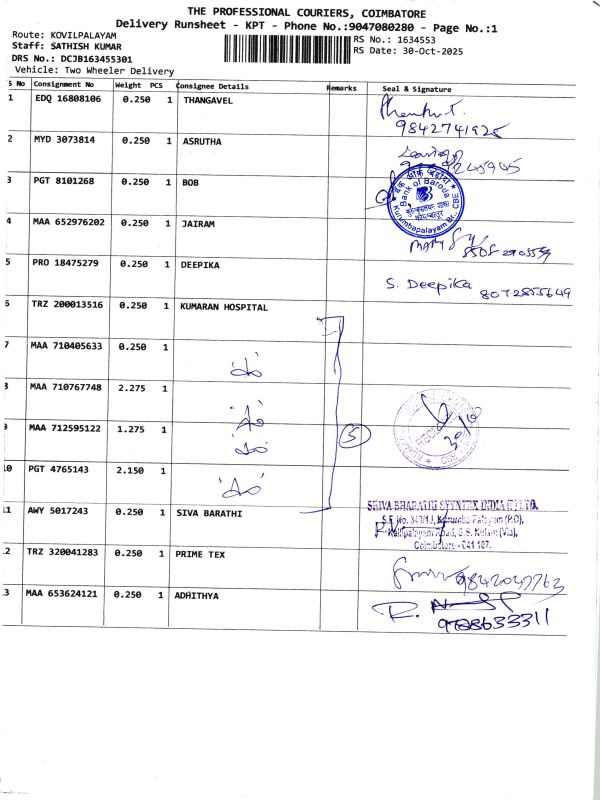 THE PROFESSIONAL COURIERS, COIMBATORE
Delivery Runsheet - KPT - Phone No.:9047080280 - Page No.:1
Route: KOVILPALAYAM
RS No.: 1634553
Staff: SATHISH KUMAR
RS Date: 30-Oct-2025
DRS No.: DCJB163455301
Vehicle: Two Wheeler Delivery
S No Consignment No Weight PCS Consignee Details Remarks Seal & Signature
1 EDQ 16808106 0.250 1 THANGAVEL
9842741925
2 MYD 3073814 0.250 1 ASRUTHA
3 PGT 8101268 0.250 1 BOB
Bank of Baroda
Kurumbapalayam Br., CBE
4 MAA 652976202 0.250 1 JAIRAM
5 PRO 18475279 0.250 1 DEEPIKA
S. Deepika 8072855649
6 TRZ 200013516 0.250 1 KUMARAN HOSPITAL
7 MAA 710405633 0.250 1
8 MAA 710767748 2.275 1
9 MAA 712595122 1.275 1
5
30/10
10 PGT 4765143 2.150 1
11 AWY 5017243 0.250 1 SIVA BARATHI
SHIVA BHARATHI
S.F. No. 340/1J, Kurumba Palayam (P.O),
Kalipalayam Road, S.S. Kulam (Via),
Coimbatore - 641 107.
12 TRZ 320041283 0.250 1 PRIME TEX
9842047763
13 MAA 653624121 0.250 1 ADHITHYA
9728633311